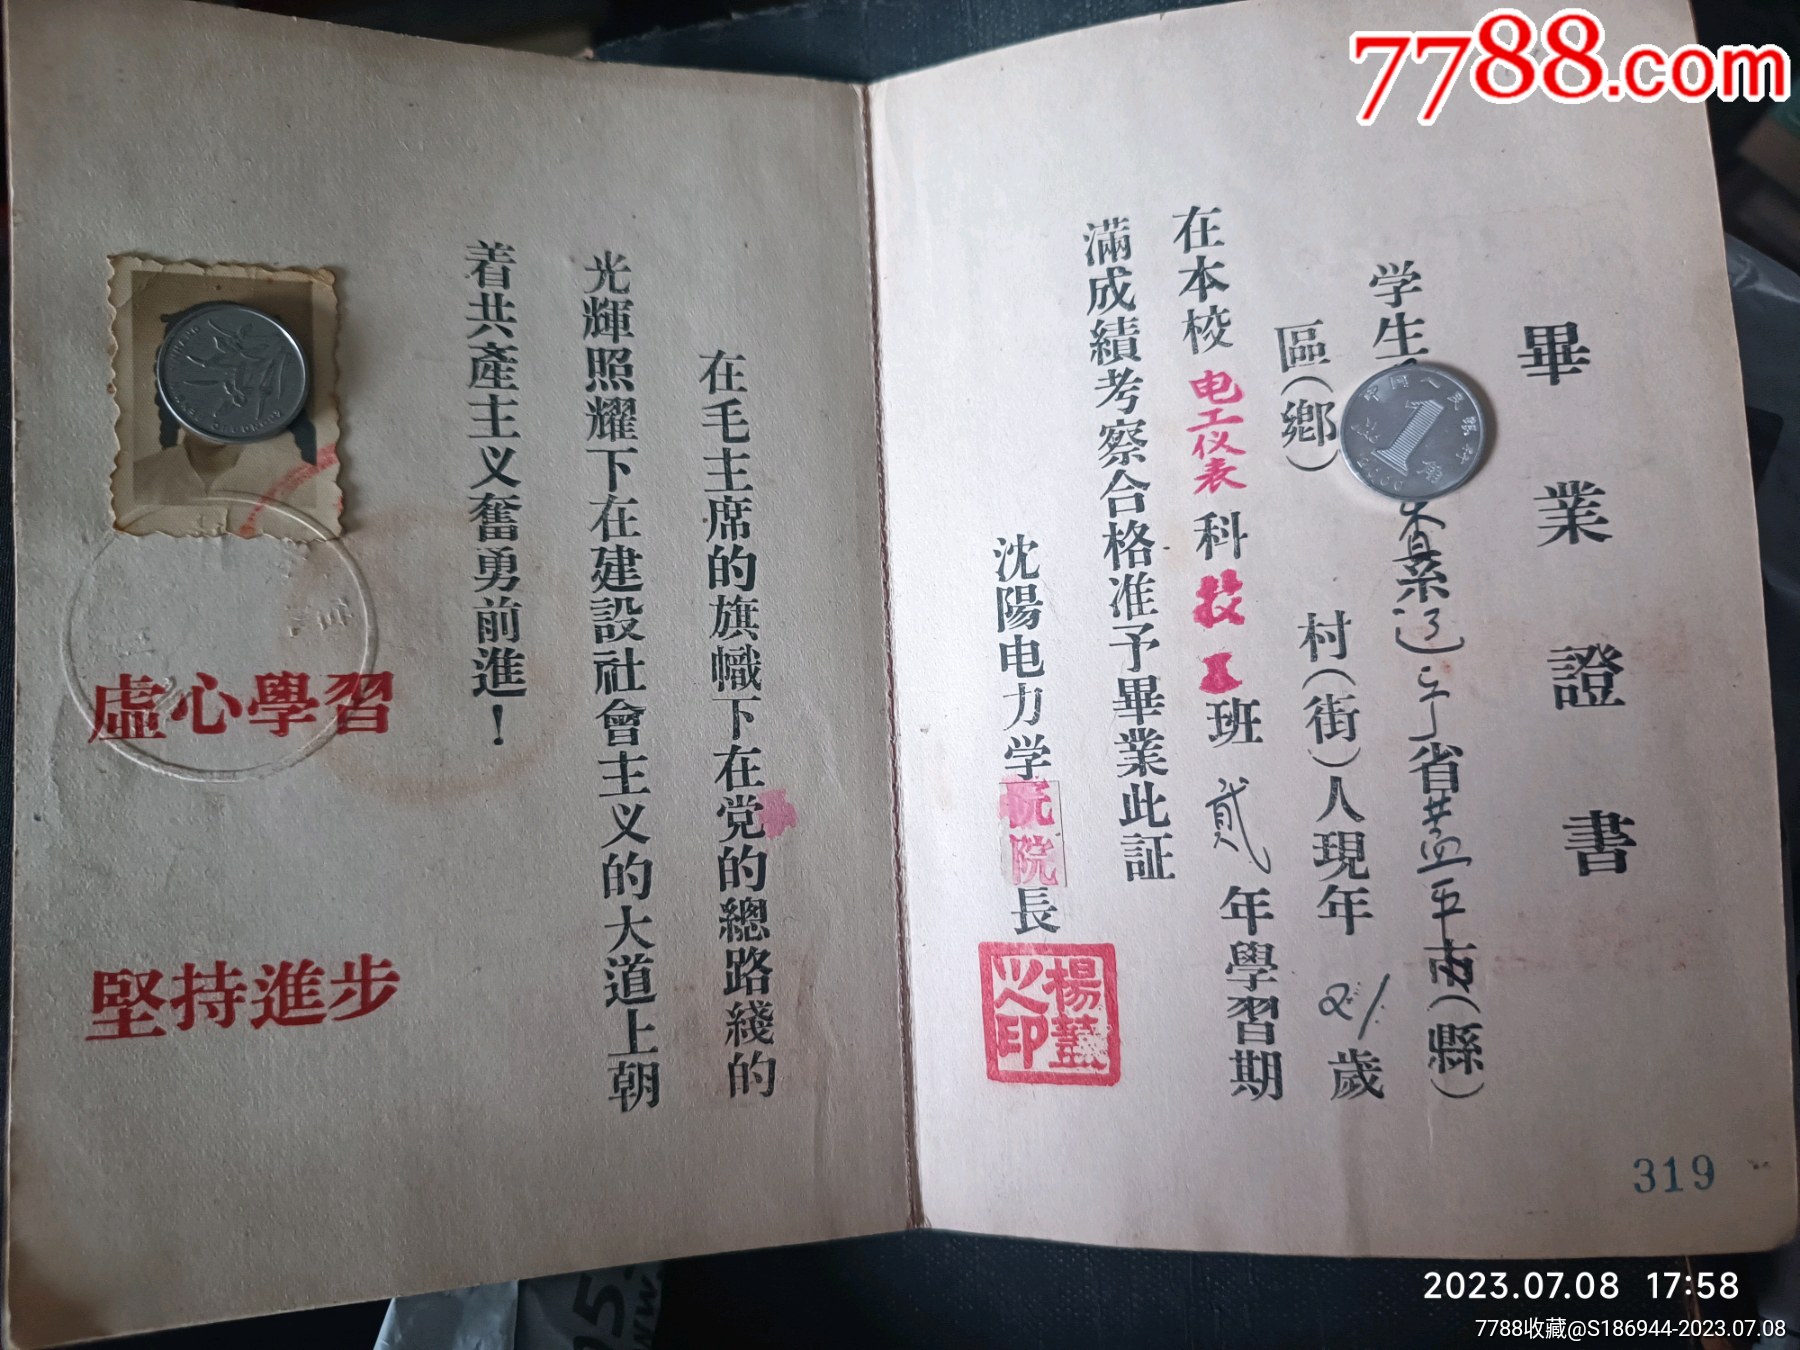 7788.com
畢業證書
学生
系辽宁省盖平市(縣)
區(鄉) 村(街)人現年21歲
在本校电工仪表科技 班貳年學習期
滿成績考察合格准予畢業此証
沈陽电力学院院長
319
在毛主席的旗幟下在党的總路綫的
光輝照耀下在建設社會主义的大道上朝
着共產主义奮勇前進！
虛心學習
堅持進步
2023.07.08 17:58
7788收藏@S186944-2023.07.08